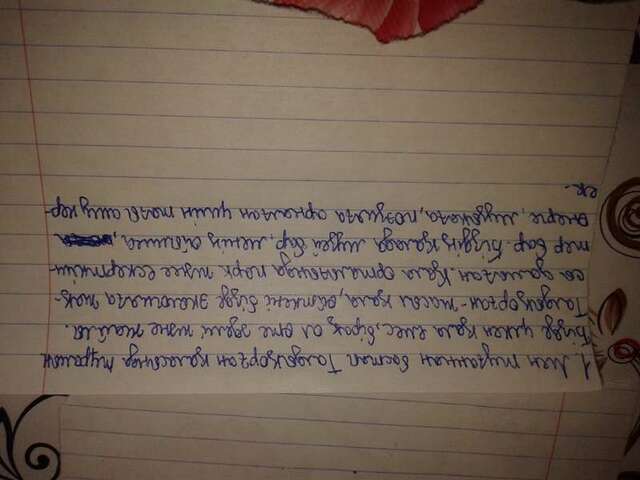 1 Мен туғаннан бастап Талдықорған қаласында тұрамын
Бізде үлкен қала емес, бірақ ол өте әдемі және жайлы.
Талдықорған-жасыл қала, өйткені бізде экологияға жақ-
сы дамыған. Қала орталығында парк және ескерткіш-
тер бар. Біздің қалада музей бар, менің ойымша,
өнерге, музыкаға, поэзияға арналған үйлің тағы ашу кер-
ек.